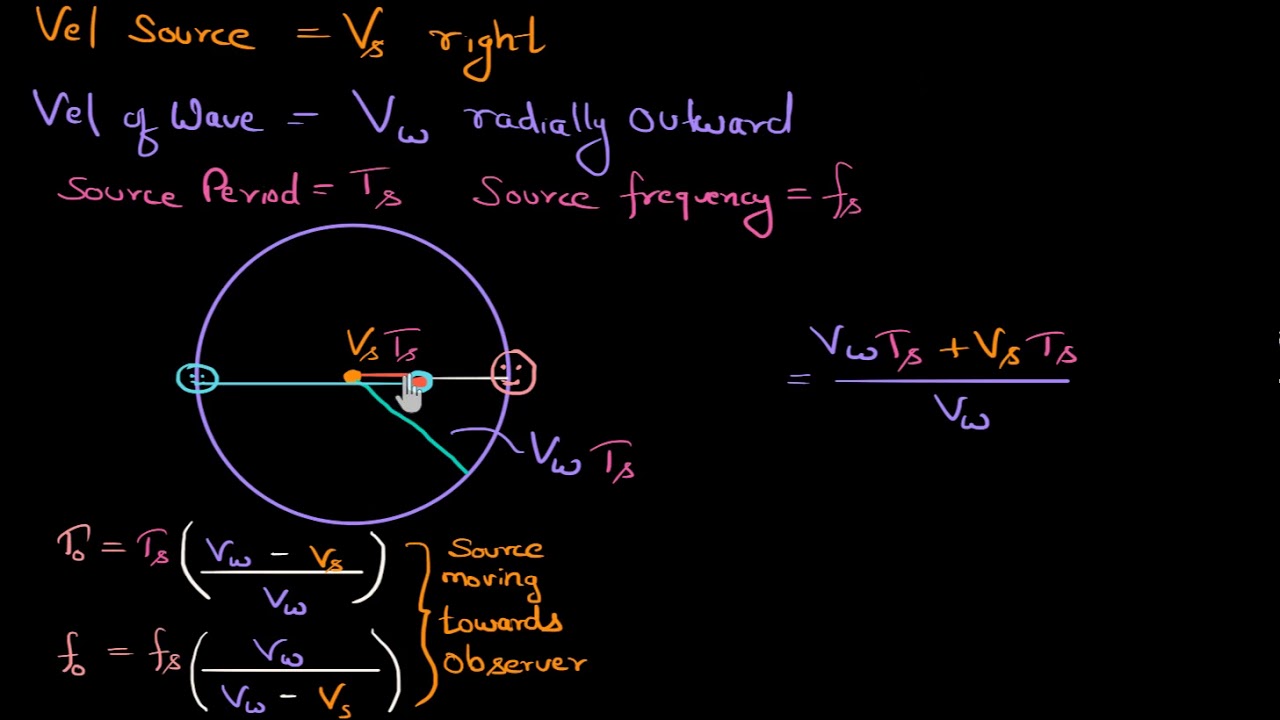 Vel Source = Vs right
Vel of Wave = Vw radially outward
Source Period = Ts Source frequency = fs
Vs Ts
Vw Ts
= VwTs + VsTs
Vw
To = Ts (Vw - Vs
Vw)
fo = fs (Vw
Vw - Vs)
Source
moving
towards
observer